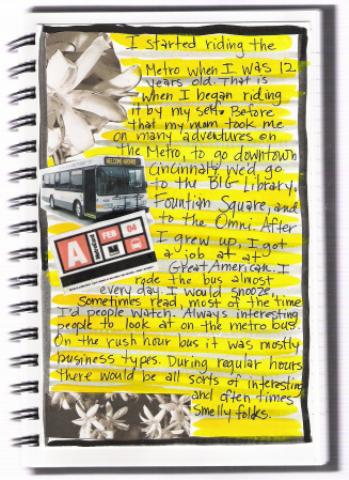 I started riding the
Metro when I was 12
years old. That is
when I began riding
it by my self. Before
that my mom took me
on many adventures on
the Metro, to go downtown
Cincinnati. We'd go
to the BIG Library.
Fountian Square, and
to the Omni. After
I grew up, I got
a job at at
Great American. I
rode the bus almost
every day. I would snooze,
sometimes read, most of the time
I'd people watch. Always interesting
people to look at on the metro bus.
On the rush hour bus it was mostly
business types. During regular hours
there would be all sorts of interesting
and often times
smelly folks.
A
FEB
04